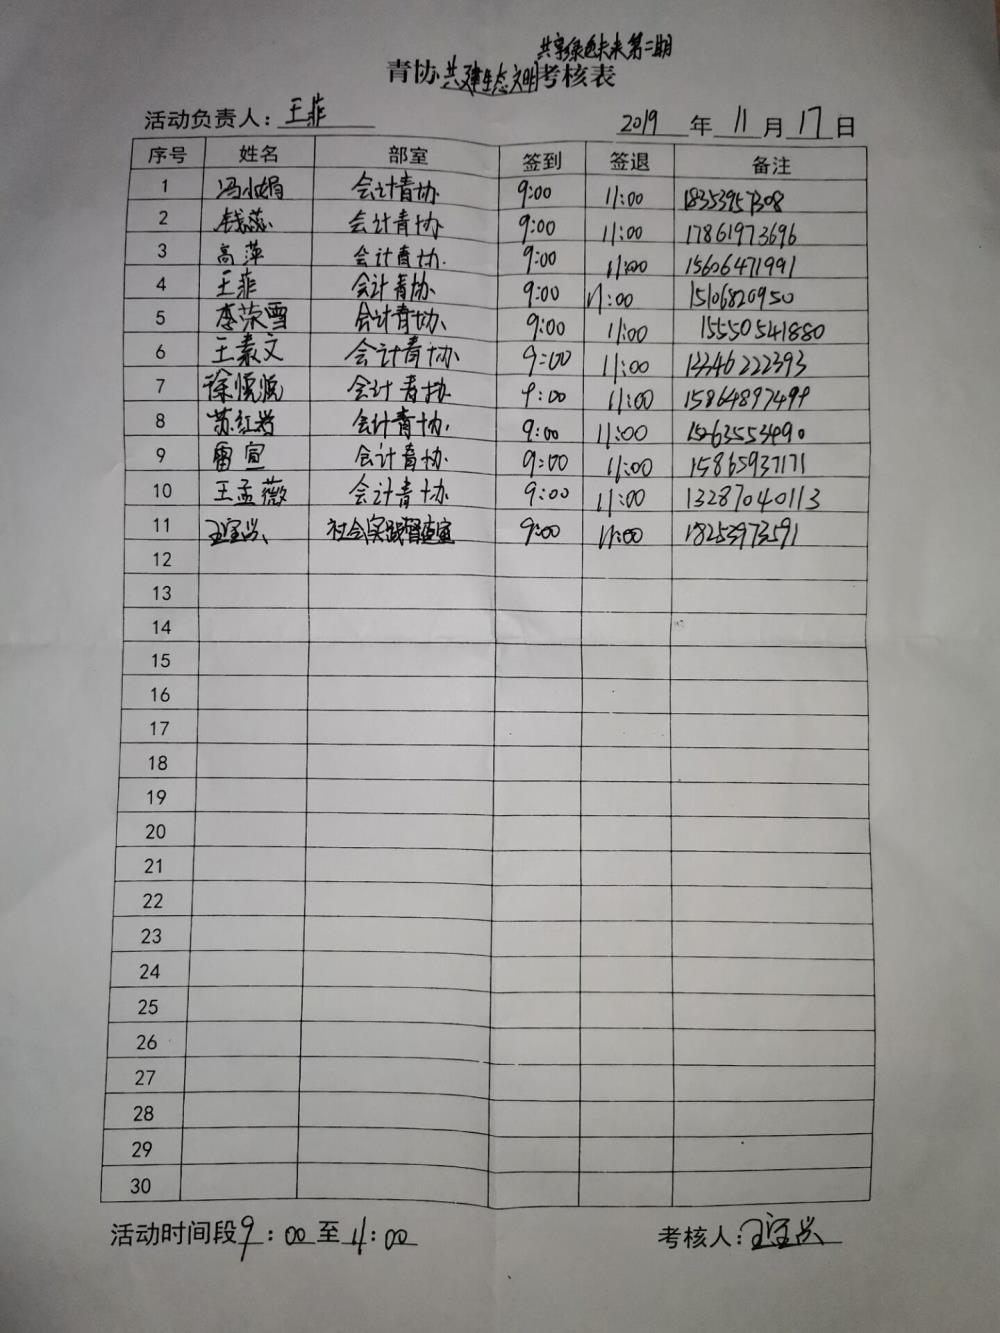 共享绿色未来第二期
青协共建生态文明考核表
活动负责人：王菲 2019 年 11 月 17 日
序号 姓名 部室 签到 签退 备注
1 冯小娟 会计青协 9:00 11:00 18353957308
2 钱蕊 会计青协 9:00 11:00 17861973696
3 高萍 会计青协 9:00 11:00 15606471991
4 王菲 会计青协 9:00 11:00 15106820950
5 李荣雪 会计青协 9:00 11:00 15550541880
6 王素文 会计青协 9:00 11:00 13346222393
7 徐悦悦 会计青协 9:00 11:00 15864897499
8 苏红岩 会计青协 9:00 11:00 15263553490
9 雷宣 会计青协 9:00 11:00 15865937171
10 王孟薇 会计青协 9:00 11:00 13287040113
11 王宝兴 社会实践督查室 9:00 11:00 18253973591
12
13
14
15
16
17
18
19
20
21
22
23
24
25
26
27
28
29
30
活动时间段9：00至11：00 考核人：王宝兴